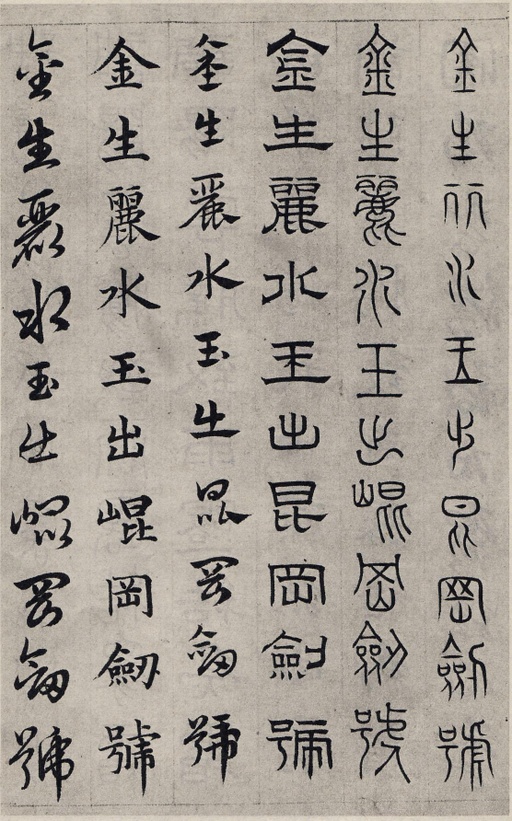 金生丽水玉出昆岡劎號
金生麗水王出崐岡劎號
金生麗水玉出昆岡劎號
金生麗水玉出昆岡劎號
金生麗水玉出崐岡劎號
金生麗水玉出崐岡劎號